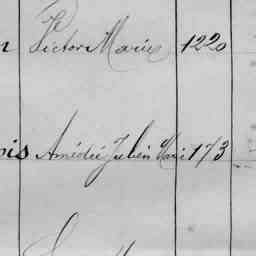 n Victor Marie 1220
ois Amédée Julien Marie 173